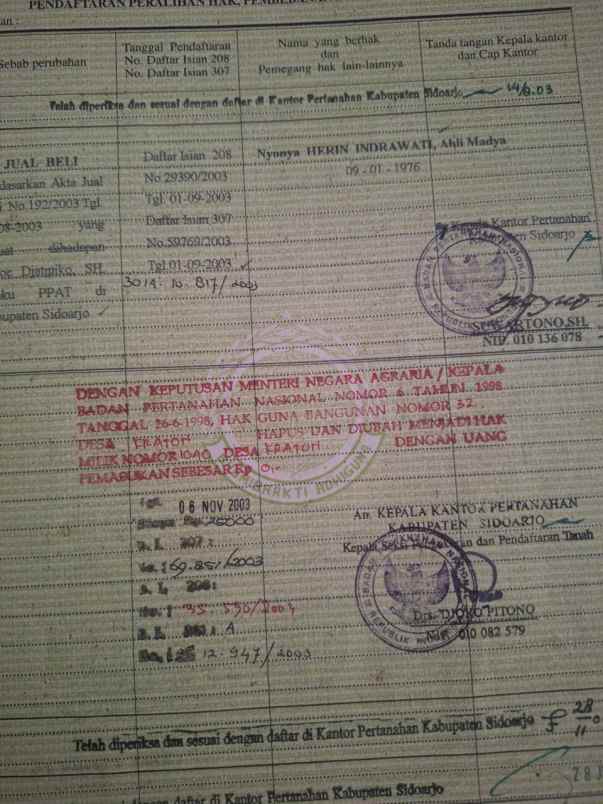 PENDAFTARAN PERALIHAN HAK,
Sebab perubahan
Tanggal Pendaftaran
No. Daftar Isian 208
No. Daftar Isian 307
Nama yang berhak
dan
Pemegang hak lain-lainnya
Tanda tangan Kepala kantor
dan Cap Kantor
Telah diperiksa dan sesuai dengan daftar di Kantor Pertanahan Kabupaten Sidoarjo
JUAL BELI
dasarkan Akta Jual
No.192/2003 Tgl.
08-2003 yang
dihadapan
Djatmiko, SH.
PPAT di
Sidoarjo
Daftar Isian 208
No.29390/2003
Tgl. 01-09-2003
Daftar Isian 307
No.59769/2003
Tgl.01-09-2003
Nyonya HERIN INDRAWATI, Ahli Madya
09 - 01 - 1976
Kepala Kantor Pertanahan
Sidoarjo
NIP. 010 136 078
DENGAN KEPUTUSAN MENTERI NEGARA AGRARIA / KEPALA
BADAN PERTANAHAN NASIONAL NOMOR 6 TAHUN 1998
TANGGAL 26-6-1998, HAK GUNA BANGUNAN NOMOR 32
DESA KRATON HAPUS DAN DIUBAH MENJADI HAK
MILIK NOMOR 1040 DESA KRATON DENGAN UANG
PEMASUKAN SEBESAR Rp 0,-
Tgl. 06 NOV 2003
No. : 69.851/2003
No. 12.947/2003
An. KEPALA KANTOR PERTANAHAN
KABUPATEN SIDOARJO
Kepala Seksi dan Pendaftaran Tanah
Drs. DJOKO PITONO
NIP. 010 082 579
Telah diperiksa dan sesuai dengan daftar di Kantor Pertanahan Kabupaten Sidoarjo
28
11
dengan daftar di Kantor Pertanahan Kabupaten Sidoarjo
28